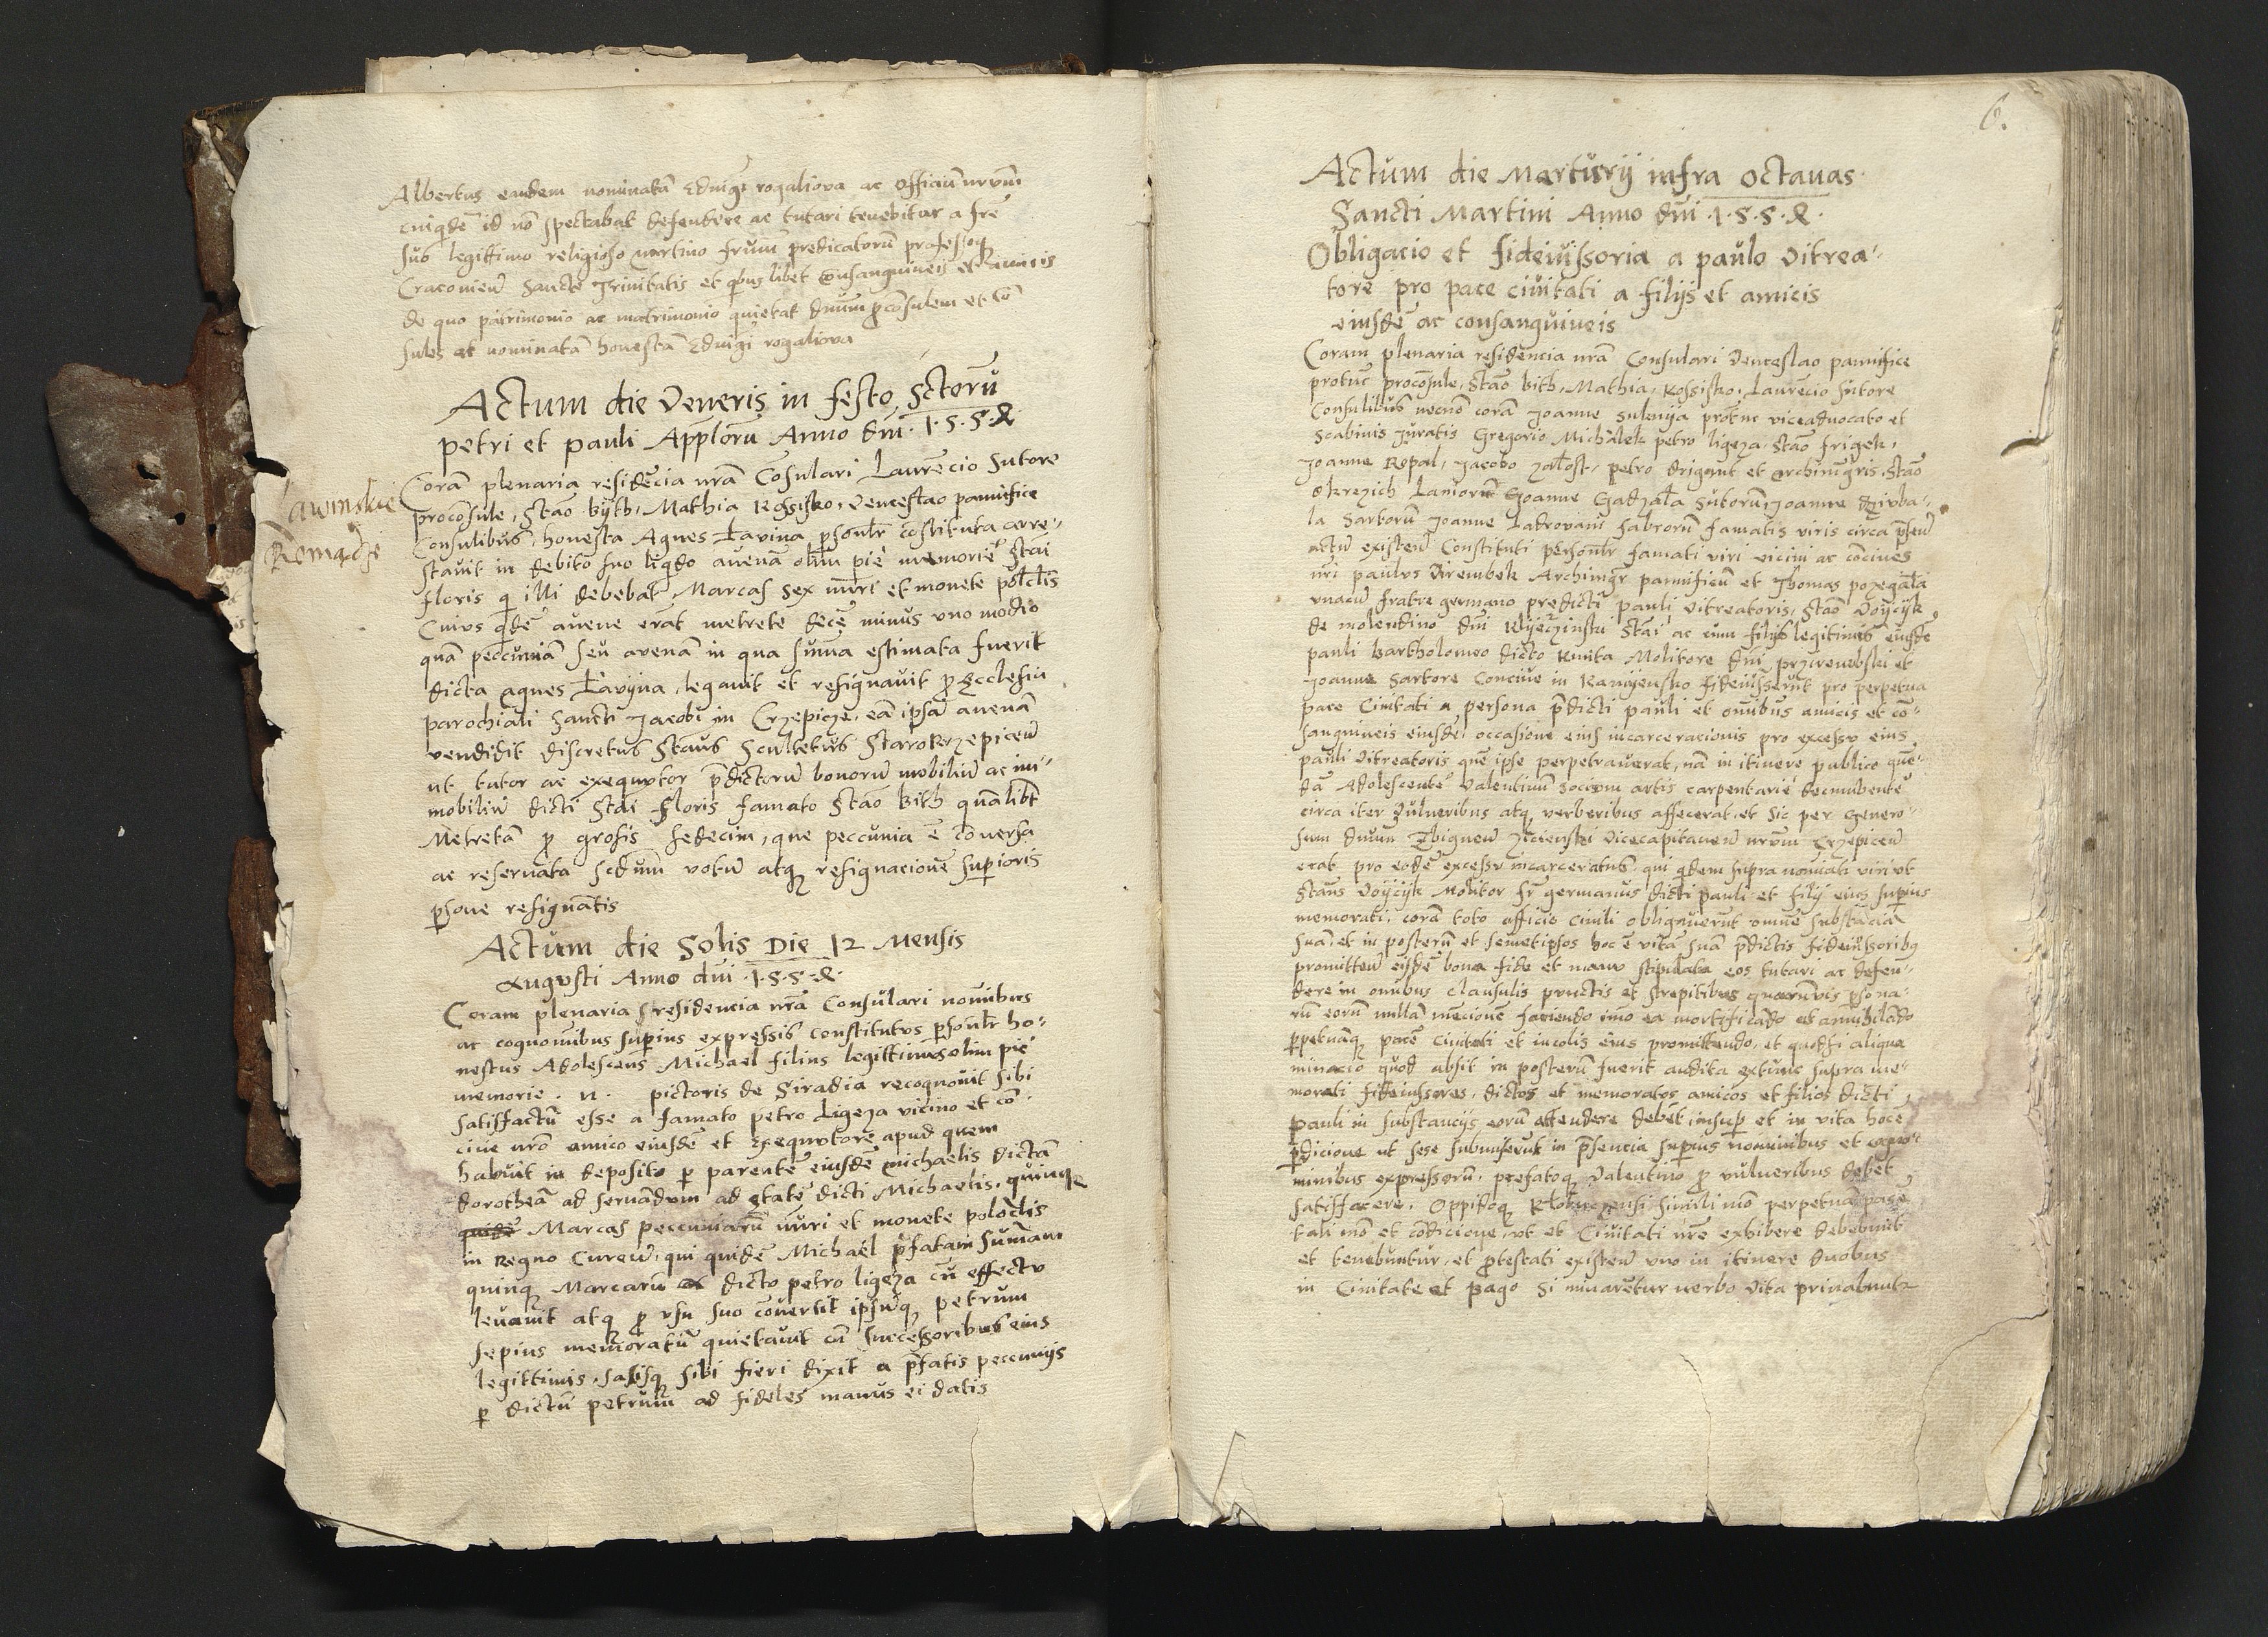 Albertus eandem nominatā Edvigē rogaliova ac officiū nrūm
cuiqdē id nō spectabat defendere ac tutari tenebitur a fre
suo legittimo religioso martino frum predicatorū professoq
Cracovien Sancte Trinitatis et qbus libet consanguineis et amicis
de quo patrimonio ac matrimonio quietat dnūm pcōsulem et cō
sules et nominatā honestā Edvigē rogaliova
Actum die Veneris in festo Sctorū
petri et pauli Applorū Anno dm̄ 1·5·5·
Corā plenaria residēcia nrā Cōsulari Laurēcio Sutore
procōsule, Stāo bijth, Mathia Kossisko, Venceslao pannifice
Lawinskie
Consulibus, honesta Agnes Łavina psonlr cōstituta arre-
stavit in debito suo liqdo avenā olim pie memorie Stāi
floris q illi debebat Marcas sex nūri et monete polclis
Cuius qdē avene erāt metrete decē minus uno modio
quā peccuniā seu avenā in qua sūma estimata fuerit
dicta Agnes Łavijna, legavit et resignavit p Ecclesia
parochiali Sancti Jacobi in Crzepicze, eā ipsā avenā
vendidit discretus Stāus Scultetus Starokrzepiceñ
ut tutor ac exequutor pdictorū bonorū mobiliū ac im-
mobiliū dicti Stāi floris famato Stāo bith qualibt
Metretā p grosis sedecim, que peccunia ē cōversa
ac reservata scdum votū atq resignacionē superioris
psone resignātis
Actum die Solis Die 12 Mensis
Augusti Anno dm̄i ·1·5·5·
Coram plenaria residencia nrā Consulari nominibus
ac cognominibus superius expressis constitutus psonlr ho-
nestus Adolescens Michael filius legittimus olim pie
memorie · n · pictoris de Siradia recognovit sibi
satisfactū esse a famato petro Ligeza vicino et cō-
cive nrō amico eiusdē et exequutore apud quem
habuit in deposito p parentē eiusdē Michaelis dictā
dorotheā ad servandum ad etatē dicti Michaelis, quinq
quidē Marcas peccuniarū nūri et monete polonlis
in Regno Cureñ, qui quidē Michael pfatam sūmam
quinq Marcarū a dicto petro ligeza cū effectu
levavit atq p usu suo cōvertit ipsūq petrum
sepius memoratū quietavit cū successoribus eius
legittimis, satisq sibi fieri dixit a pfatis peccunijs
p dictū petrum ad fideles manus ei datis
6.
Actum die Mercurij infra octavas
Sancti Martini Anno dm̄i ·1·5·5·
Obligacio et fideiussoria a paulo vitrea-
tore pro pace civitati a filijs et amicis
eiusdē ac consanguineis
Coram plenaria residencia nrā Consulari Venceslao pannifice
protūc procōsule, Stāo bith, Mathia, Kossisko, Laurēcio Sutore
Consulibus necnō corā Joanne protūc viceadvocato et
Scabinis Juratis Gregorio Michalek petro ligeza Stāo frigek,
Joanne Kopal, Jacobo petro et archimgris, Stāo
Laniorū Joanne Gadzala Sutorū, Joanne
la Sartorū Joanne fabrorū famatis viris circa psen
actū existeñ Constituti personlr famati viri vicini ac cōcives
nri paulus Direnbek Archimgr pannificū et Thomas pozegala
unacū fratre germano predicti pauli vitreatoris, Stāo Voijcijk
de molendino dni Stāi ac cum filijs legitimis eiusdē
pauli Bartholomeo dicto Molitore dni et
Joanne Sartore Concive in fideiusserūt pro perpetua
pace Civitati a persona pdicti pauli et omibus amicis et cō-
sanguineis eiusdē, occasione eius incarceracionis pro excessu eius
pauli vitreatoris quē ipse perpetraverat, nā in itinere publico quē-
dā Adolescentē Valentinū socium artis carpentarie decumbentē
circa iter vulneribus atq verberibus affecerat, et sic per Genero-
sum dnum vicecapitaneū nrūm Crzepiceñ
erat pro eodē excessu incarceratus, qui qdem supra nominati viri ut
Stāus Voijcijk Molitor fr germanus dicti pauli et filij eius superius
memorati, corā toto officio civili obligaverūt omnē substāciā
suā et in posterū et semetipsos hoc ē vitā suā pdictis fideiussoribq
promitteñ eisdē bona fide et manu stipulata eos tutari ac defen-
dere in omibus clausulis punctis et strepitibus quarūvis psona-
rū eorū nullā mēcionē faciendo imo ea mortificādo et annihilādo
ppetuāq pacē Civitati et incolis eius promittendo, et quodsi aliqua
minacio quod absit in posterū fuerit audita extunc supra me-
morati fideiussores, dictos et memoratos amicos et filios dicti
pauli in substancijs eorū attendere debēt insup et in vita hoc ē
pdicione ut sese submiserūt in psencia superius nominibus et cogno-
minibus expressorū, prefatoq Valentino p vulneribus debēt
satisfacere, Oppidoq simili mō perpetuā pacē
tali mō et cōdicione, ut et Civitati nre exhibere debebunt
et tenebuntur, et protestati existeñ uno in itinere duobus
in Civitate et pago si minarētur verbo vita privabuntr